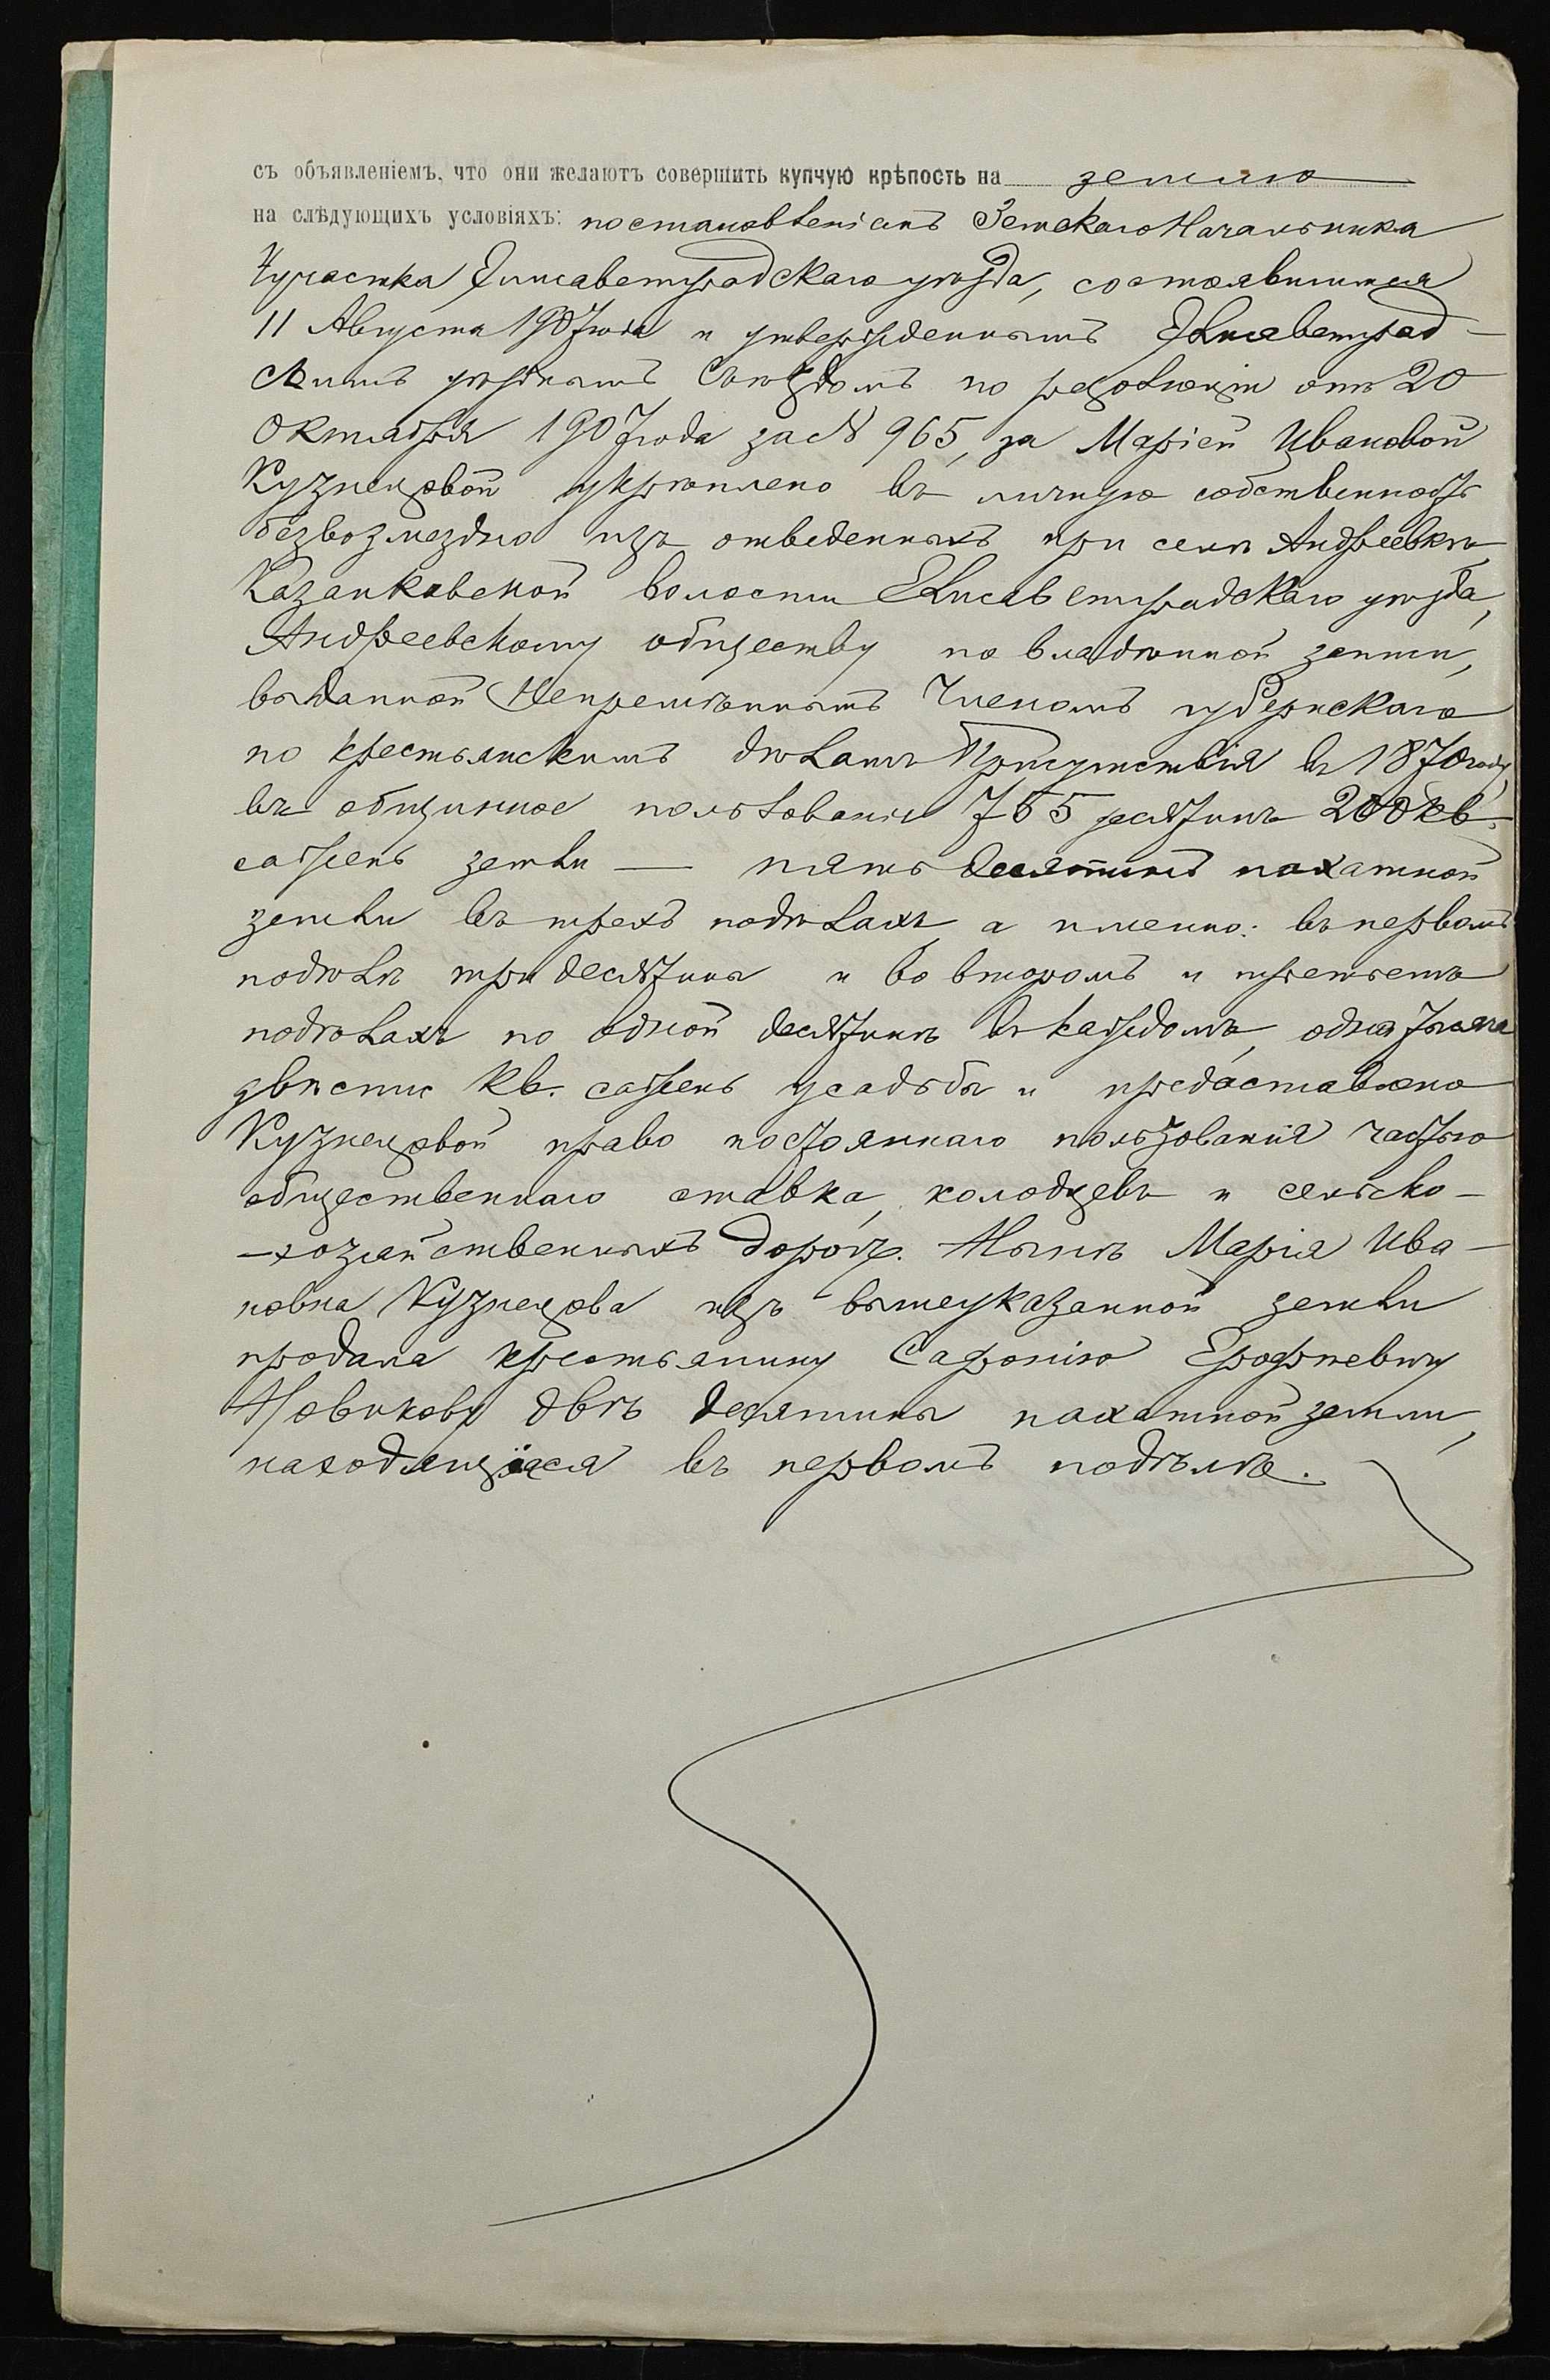 съ объявленіемъ, что они желаютъ совершить купчую крѣпость на землю
на слѣдующихъ условіяхъ: постановленіемъ Земскаго Начальника
7 участка Елисаветградскаго уѣзда, состоявшимся
11 Августа 1907 года и утвержденнымъ Елисаветград-
скимъ уѣзднымъ Съѣздомъ по резолюціи отъ 20
Октября 1907 года за № 965, за Маріей Ивановой
Кузнецовой укрѣплено въ личную собственность
безвозмездно изъ отведенныхъ при селѣ Андреевкѣ,
Казанковской волости Елисаветградскаго уѣзда,
Андреевскому обществу по владѣнной записи,
выданной Непремѣннымъ Членомъ губернскаго
по крестьянскимъ дѣламъ Присутствія въ 1870 году,
въ общинное пользованіе 765 десятинъ 200 кв.
сажень земли — пять десятинъ пахатной
земли въ трехъ подѣлахъ, а именно: въ первомъ
подѣлѣ три десятины и во второмъ и третьемъ
подѣлахъ по одной десятинѣ въ каждомъ, одна тысяча
двѣсти кв. сажень усадьбы и предоставлено
Кузнецовой право постояннаго пользованія частью
общественнаго ставка, колодцевъ и сельско-
-хозяйственныхъ дорогъ. Нынѣ Марія Ива-
новна Кузнецова изъ вышеуказанной земли
продала крестьянину Сафонію Ерофѣевичу
Новикову двѣ десятины пахатной земли,
находящіяся въ первомъ подѣлѣ.